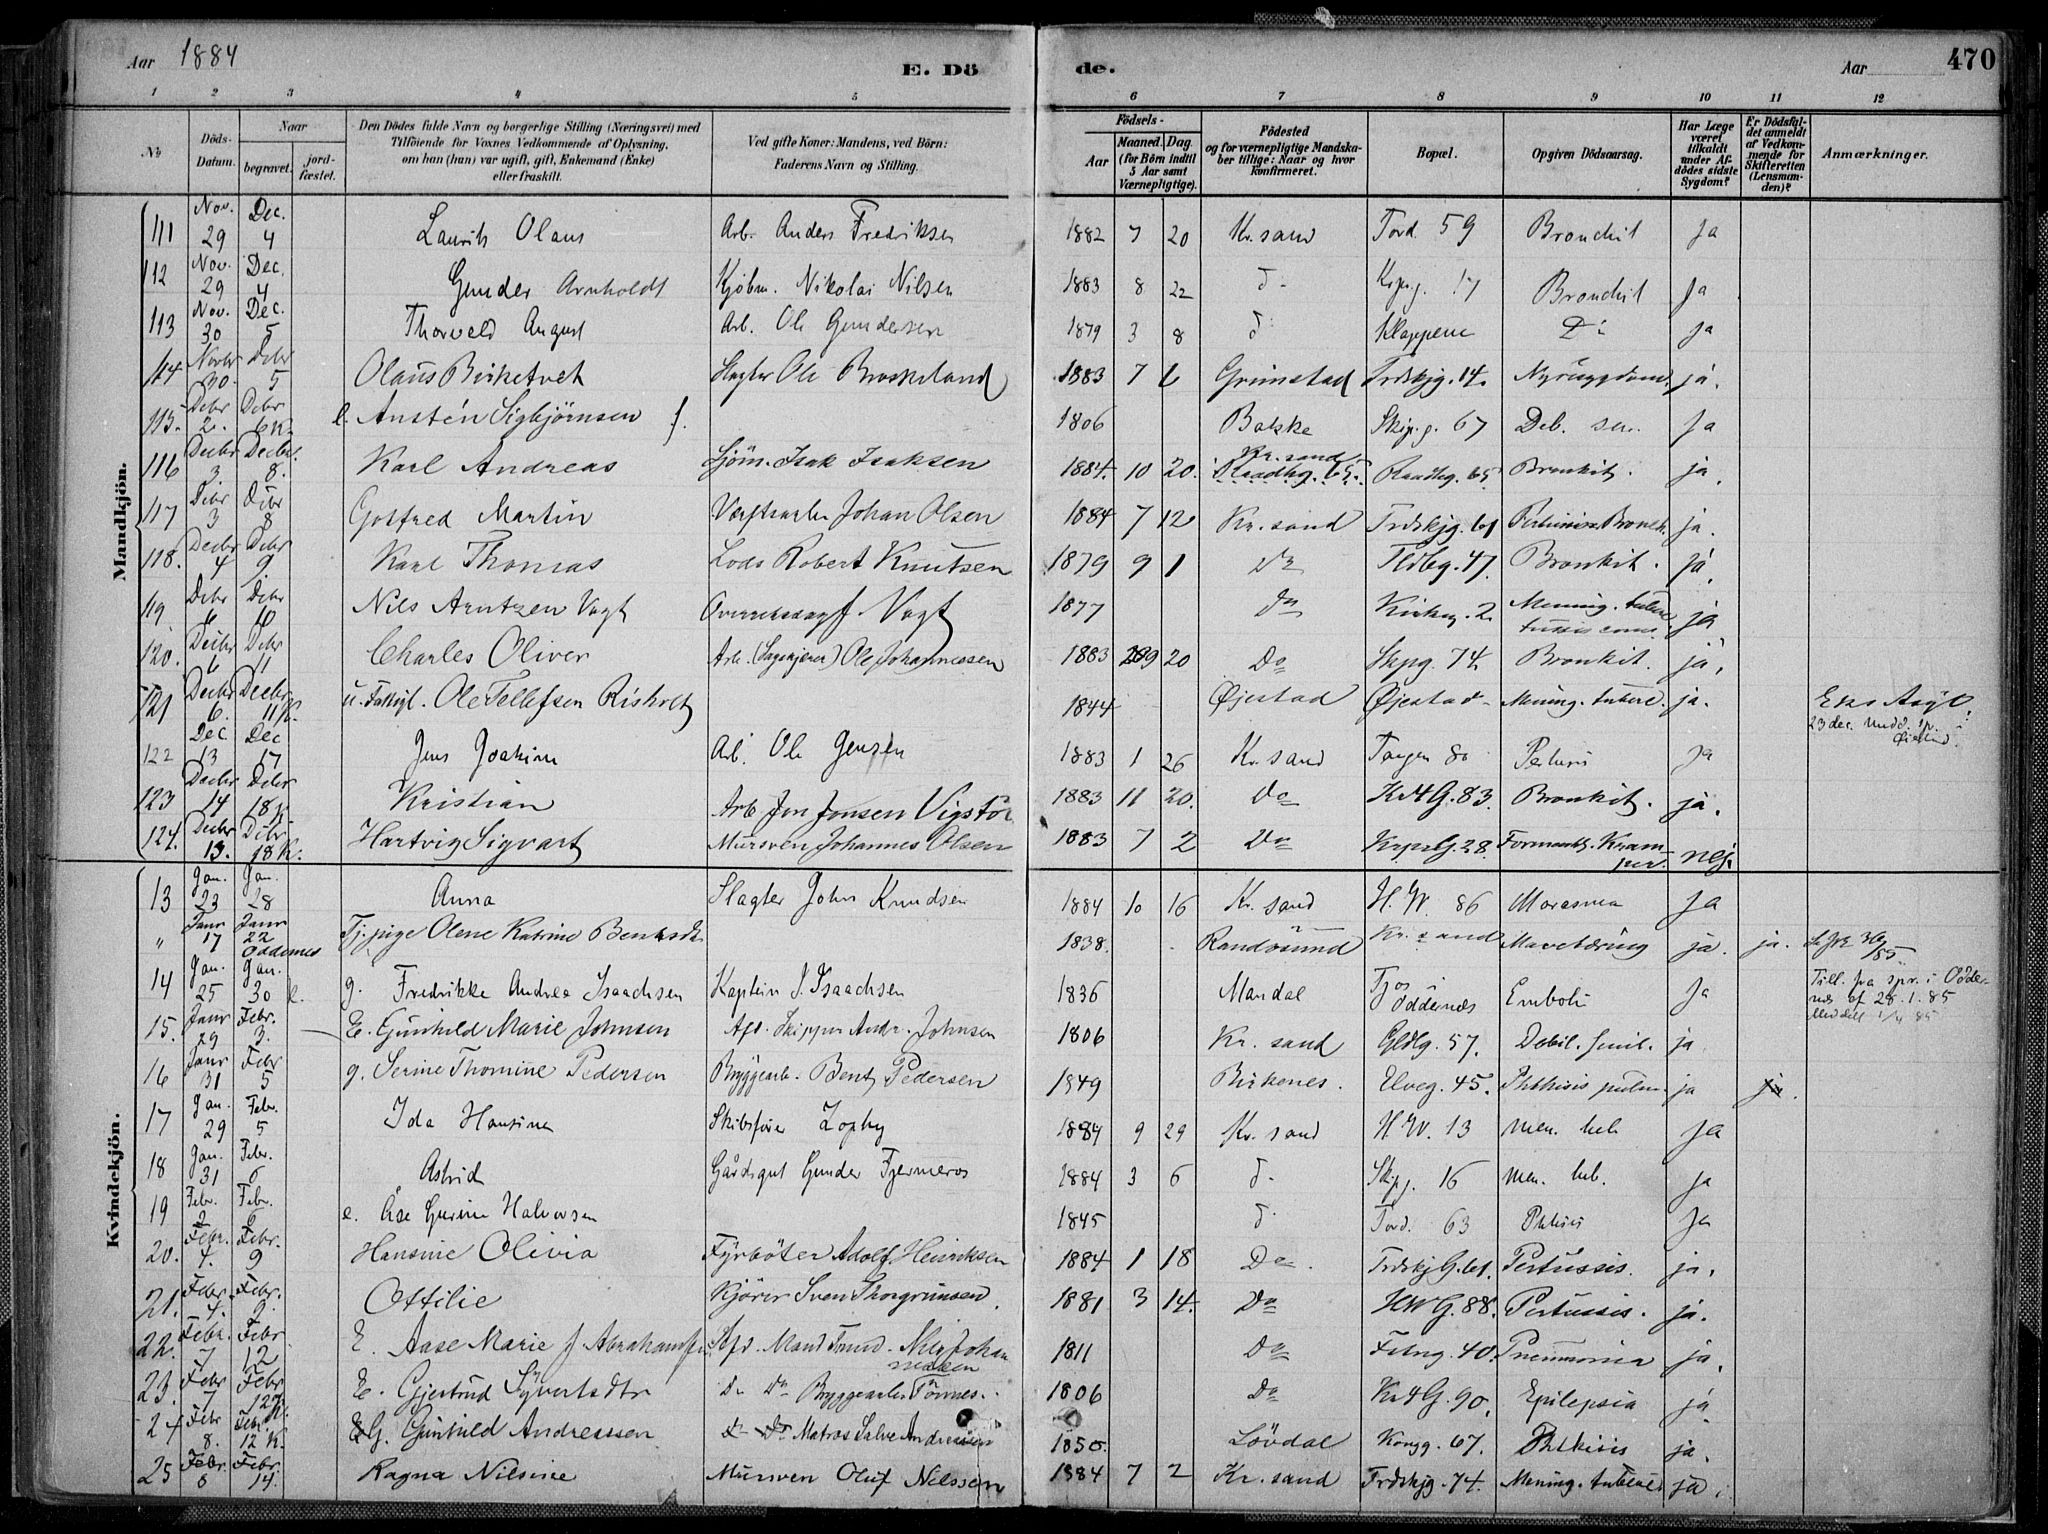 Aar 1884 E. Dö de. Aar 470
1 2 3 4 5 6 7 8 9 10 11 12
№ Döds-Datum. Naar begravet. jord-fæstet. Den Dödes fulde Navn og borgerlige Stilling (Næringsvei) med Tilföiende for Voxnes Vedkommende af Oplysning, om han (hun) var ugift, gift, Enkemand (Enke) eller fraskilt. Ved gifte Koner: Mandens, ved Börn: Faderens Navn og Stilling. Födsels- Aar Maaned. Dag. (for Börn indtil 5 Aar samt Værnepligtige). Födested og for værnepligtige Mandska-ber tillige: Naar og hvor konfirmeret. Bopæl. Opgiven Dödsaarsag. Har Læge været tilkaldt under Af-dödes sidste Sygdom? Er Dödsfal-det anmeldt af Vedkom-mende for Skifteretten (Lensman-den)? Anmærkninger.
Mandkjön.
111 Nov. 29 Dec. 4 Laurits Olaus Arb. Anders Fredriksen 1882 7 20 Kr.sand Tord. 59 Bronchit Ja
112 Nov. 29 Dec. 4 Gunder Arnholdt Kjöbm. Nikolai Nilsen 1883 8 22 d- Krpr.g. 17 Bronchit Ja
113 Nov. 30 Dec. 5 Thorvald August Arb. Ole Gundersen 1879 3 8 d- Klappene Do Ja
114 Novbr 30. Debr 5 Olaus Birketvet Slagter Ole Broskeland 1883 7 6 Grimstad Trdskjg. 14. Nyresygdom. ja.
115. Debr 2. Debr 6 K. e. Austén Sigbjörnsen f. 1806 Bakke Skip.g. 67 Deb. sen. Ja
116 Decbr 3. Decbr. 8. Karl Andreas Sjöm. Isak Isaksen 1884. 10 20. Kr. sand Raadhg. 65. Raadhg. 65 Bronkit. ja.
117 Debr 3 Debr 8 Gotfred Martin Værftsarb. Johan Olsen 1884 7 12 Kr. sand Trdskjg. 61 Pertussis. Bronch. ja.
118. Decbr 4 Debr 9 Karl Thomas Lods Robert Knutsen 1879 9 1 Do Tldbg. 47. Bronkit. ja.
119. Debr 6 Debr 10 Nils Arntzen Vogt Overretssagf. Vogt 1877 Do Kirkeg. 2. Mening. tuberc. tussis conv. ja
120. Decbr 6 Debr 11 Charles Oliver Arb. (Sagskjærer) Ole Johannesen 1883 9 20 Do Skpg. 74. Bronkit. ja.
121 Decbr 6. Decbr 11 K. u. Fattigl. Ole Tellefsen Risholt 1844 Øjestad Øjestad - Mening. tuberc. ja. Eks Asyl. 23 dec. Medd. spr. i Øiestad.
122 Dec 13 Dec 17 Jens Joakim Arb. Ole Jensen 1883 1 26 Kr. sand Tangen 80 Pertussis Ja
123 Decbr 14 Debr 18 K. Kristian Arb Jon Jonsen Vigstöl 1883 11 20. Do Kr4G. 83. Bronkit. ja.
124. Decbr 13. Debr 18 K. Hartvig Sigvart Mursven Johannes Olsen 1883 7 2 Do KrprG. 28. Formentlg. Kramper. nej.
Kvindekjön.
13 Jan. 23 Jan. 28 Anna Slagter John Knudsen 1884 10 16 Kr. sand H.W. 86 Marasmus Ja
" Janr 17 Janr 22 Oddernes Tj. pige Olene Katrine Bentsdtr 1838. Randösund Kr. sand Mavetæring ja. ja.
14 Jan. 25 Jan. 30 g. Fredrikke Andrea Isaachsen Kaptein I. Isaachsen 1836 Mandal Fjos Oddernæs Emboli Ja Till. fra spr. i Oddernes af 28.1.85 Meddelt 1/4 85
15. Janr 29 Febr. 3. E. Gunhild Marie Johnsen Afd. Skipper Andr. Johnsen 1806 Kr. sand Gldlg. 57. Debil. senil. ja
16 Janr 31 Febr 5 g. Serine Thomine Pedersen Bryggearb. Bent Pedersen 1849 Birkenes. Elveg. 45. Phthisis pulm. ja ja.
17 Jan. 29 Febr. 5 Ida Hansine Skibsförer Zophy 1884 9 29 Kr. sand H.W. 13 Men. tub. Ja
18 Jan. 31 Febr. 6 Astrid Gårdsgut Gunder Fjermeros 1884 3 6 d- Skip.g. 16 Men. tub. Ja
19 Febr. 2 Febr. 6 e. Åse Gurine Halvorsen 1845 d- Tord. 63 Phthisis Ja
20. Febr. 4. Febr. 9 Hansine Olivia Fyrböter Adolf Heinriksen 1884 1 18 Do. TrdskjG. 61. Pertussis. ja.
21. Febr. 4. Febr. 9. Ottilie Kjörer Sven Thorgrimsen. 1881 3 14. Do HWG. 88. Pertussis. ja.
22. Febr. 7 Febr 12 E. Aase Marie J Abrahamsen Afd. Mand Tømd. Nils Johannesen 1811 Do Festng. 40. Pneumonia ja.
23. Febr 7 Febr 12 K. E. Gjertrud Syvertsdtr Do Do Bryggearb. Tönnes. 1806 Do Kr4G. 90. Epilepsia ja
24 Febr 8. Febr. 12 K. G. Gunhild Andreassen Do Do Matros Salve Andreassen 1850. Lövdal Kongg. 67. Phthisis ja.
25 Febr. 8 Febr. 14. Ragna Nilsine Mursven Oluf Nilssen 1884 7 2 Kr. sand Trdskjg. 74. Mening. tubercl. ja.